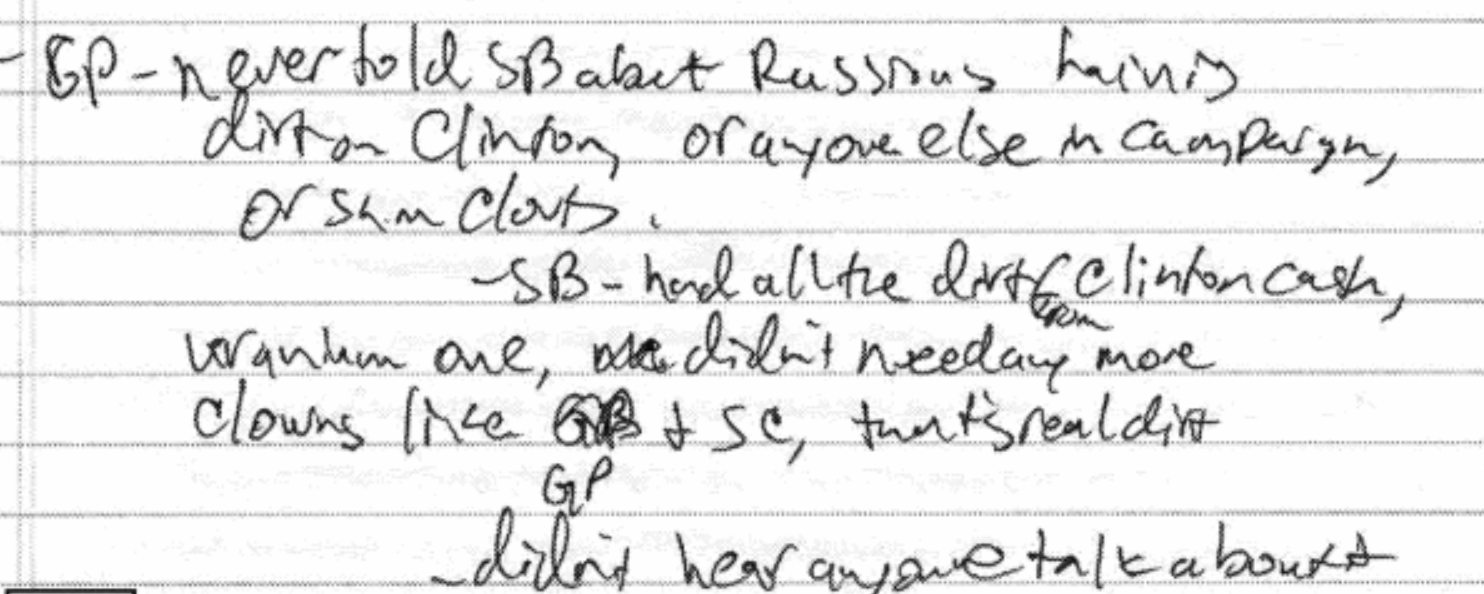 - GP - never told SB about Russians having
dirt on Clinton, or anyone else in campaign,
or Sam Clovis.
- SB - had all the dirt from Clinton Cash,
uranium one, didn't need any more
clowns like GP + SC, that's real dirt
- didn't hear anyone talk about it